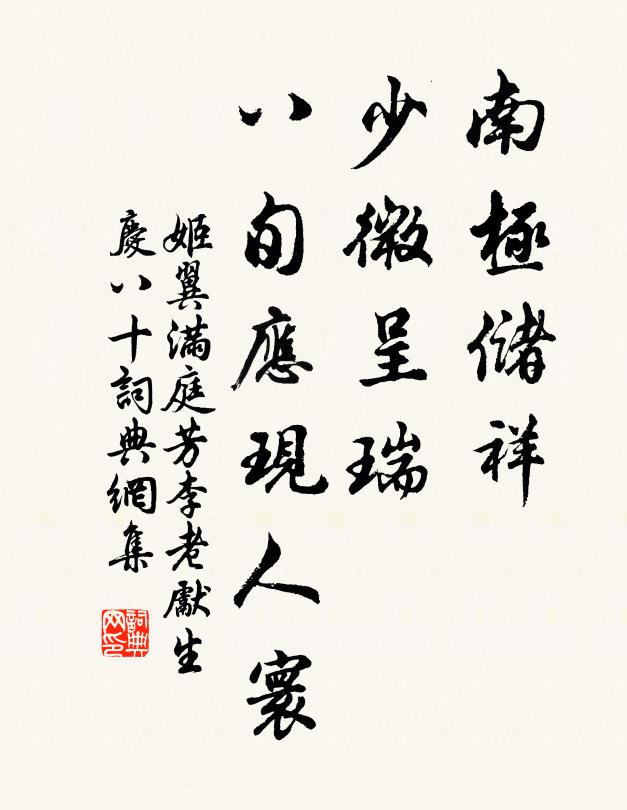 南極儲祥
少微呈瑞
八旬應現人寰
姬翼滿庭芳李老獻生
慶八十詞典網集
詞典
网印